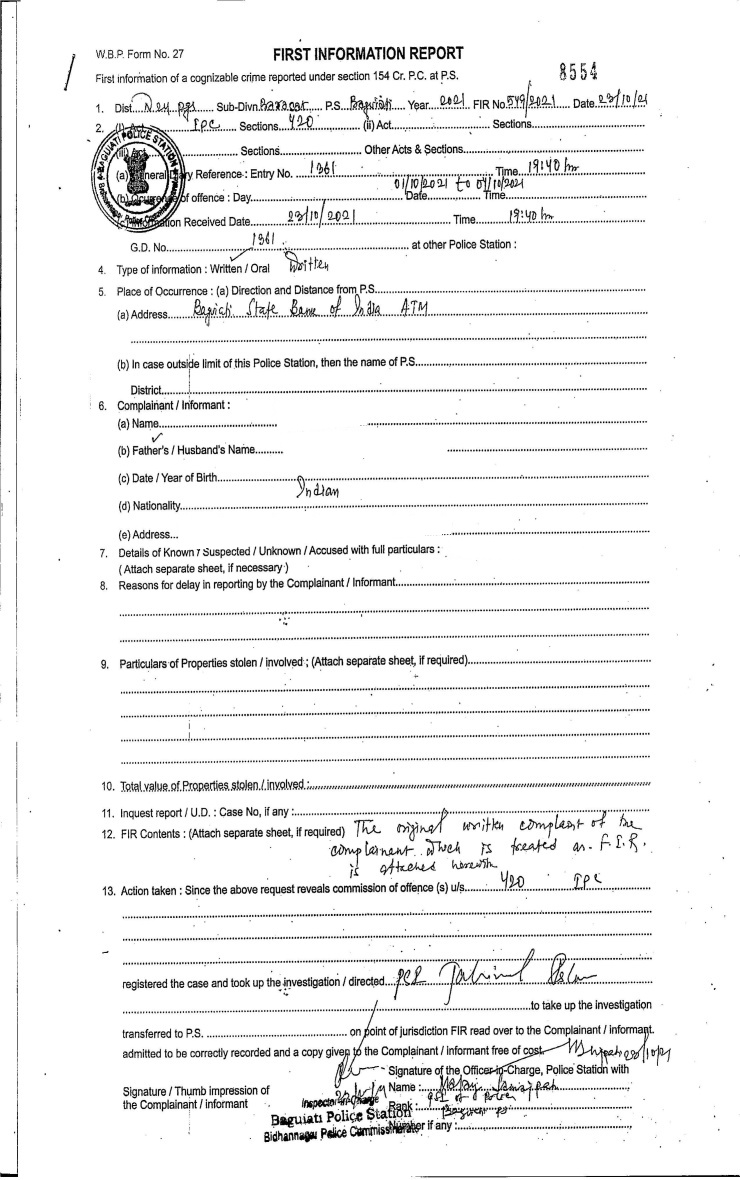 W.B.P. Form No. 27
FIRST INFORMATION REPORT
First information of a cognizable crime reported under section 154 Cr. P.C. at P.S.
8554
1. Dist. N 24 pgs Sub-Divn. Barasat P.S. Baguiati Year 2021 FIR No. 549/2021 Date 23/10/21
2. (i) Act IPC Sections 420 (ii) Act Sections
(iii) Act Sections Other Acts & Sections
(a) General Diary Reference : Entry No. 1361 Time 19:40 hr
01/10/2021 to 04/10/2021
(b) Occurrence of offence : Day Date Time
(c) Information Received Date 23/10/2021 Time 19:40 hr
G.D. No. 1361 at other Police Station :
4. Type of information : Written / Oral Written
5. Place of Occurrence : (a) Direction and Distance from P.S.
(a) Address Baguiati State Bank of India ATM
(b) In case outside limit of this Police Station, then the name of P.S.
District
6. Complainant / Informant :
(a) Name
(b) Father's / Husband's Name
(c) Date / Year of Birth
Indian
(d) Nationality
(e) Address...
7. Details of Known / Suspected / Unknown / Accused with full particulars :
( Attach separate sheet, if necessary )
8. Reasons for delay in reporting by the Complainant / Informant
9. Particulars of Properties stolen / involved ; (Attach separate sheet, if required)
10. Total value of Properties stolen / involved :
11. Inquest report / U.D. : Case No, if any :
12. FIR Contents : (Attach separate sheet, if required) The original written complaint of the
complainant which is treated as F.I.R.
is attached herewith
13. Action taken : Since the above request reveals commission of offence (s) u/s. 420 IPC
registered the case and took up the investigation / directed
to take up the investigation
transferred to P.S. on point of jurisdiction FIR read over to the Complainant / informant.
admitted to be correctly recorded and a copy given to the Complainant / informant free of cost.
Signature of the Officer-in-Charge, Police Station with
Signature / Thumb impression of
the Complainant / informant
Name :
Inspector in Charge
Rank :
Baguiati Police Station
Bidhannagar Police Commissionerate
Number if any :
BAGUIATI POLICE STATION